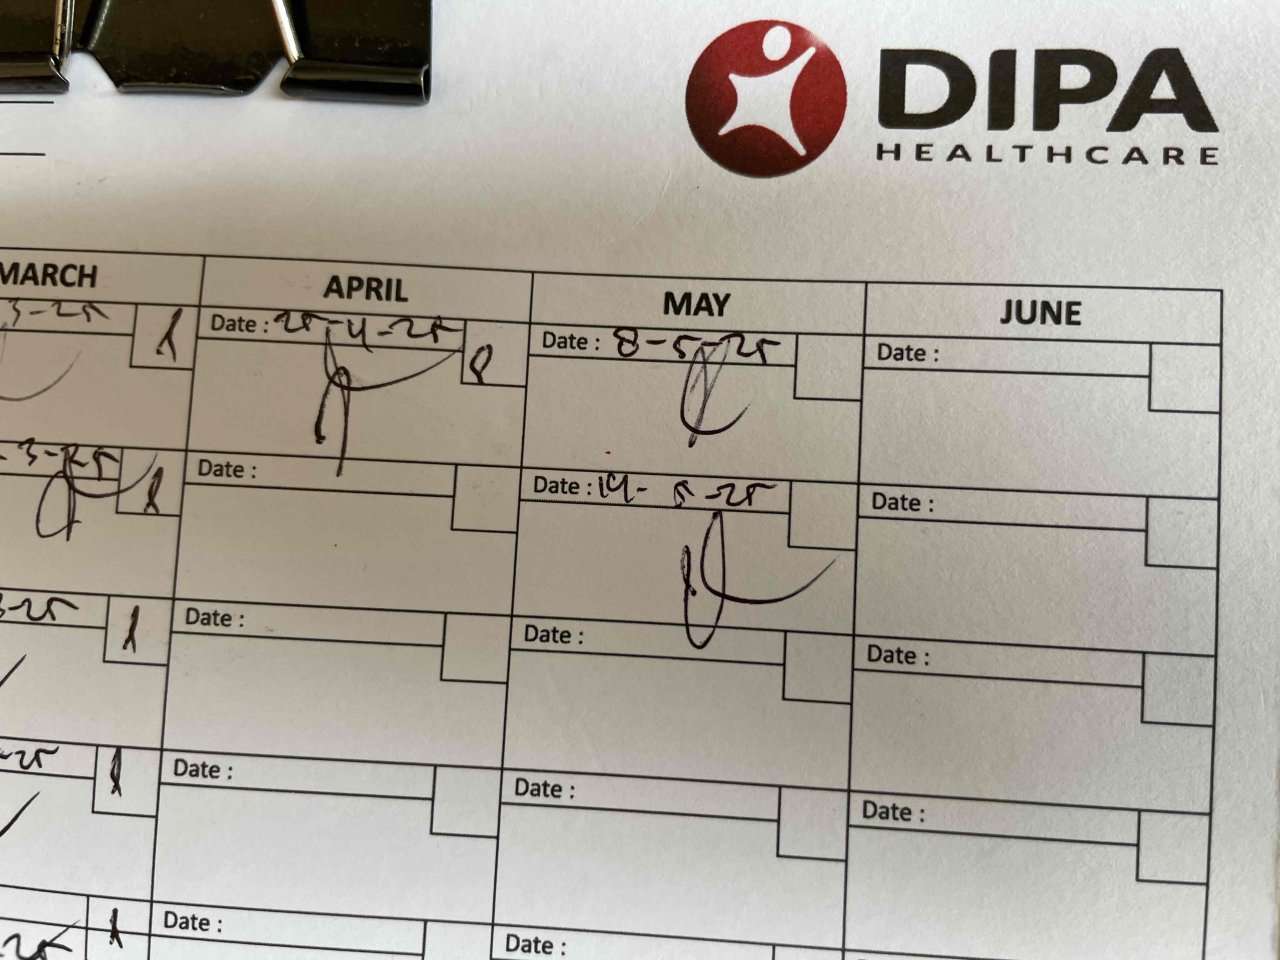 DIPA
HEALTHCARE
MARCH APRIL MAY JUNE
3-25 Date : 25-4-25 Date : 8-5-25 Date :
3-25 Date : Date : 19-5-25 Date :
3-25 Date : Date : Date :
-25 Date : Date : Date :
25 Date : Date :